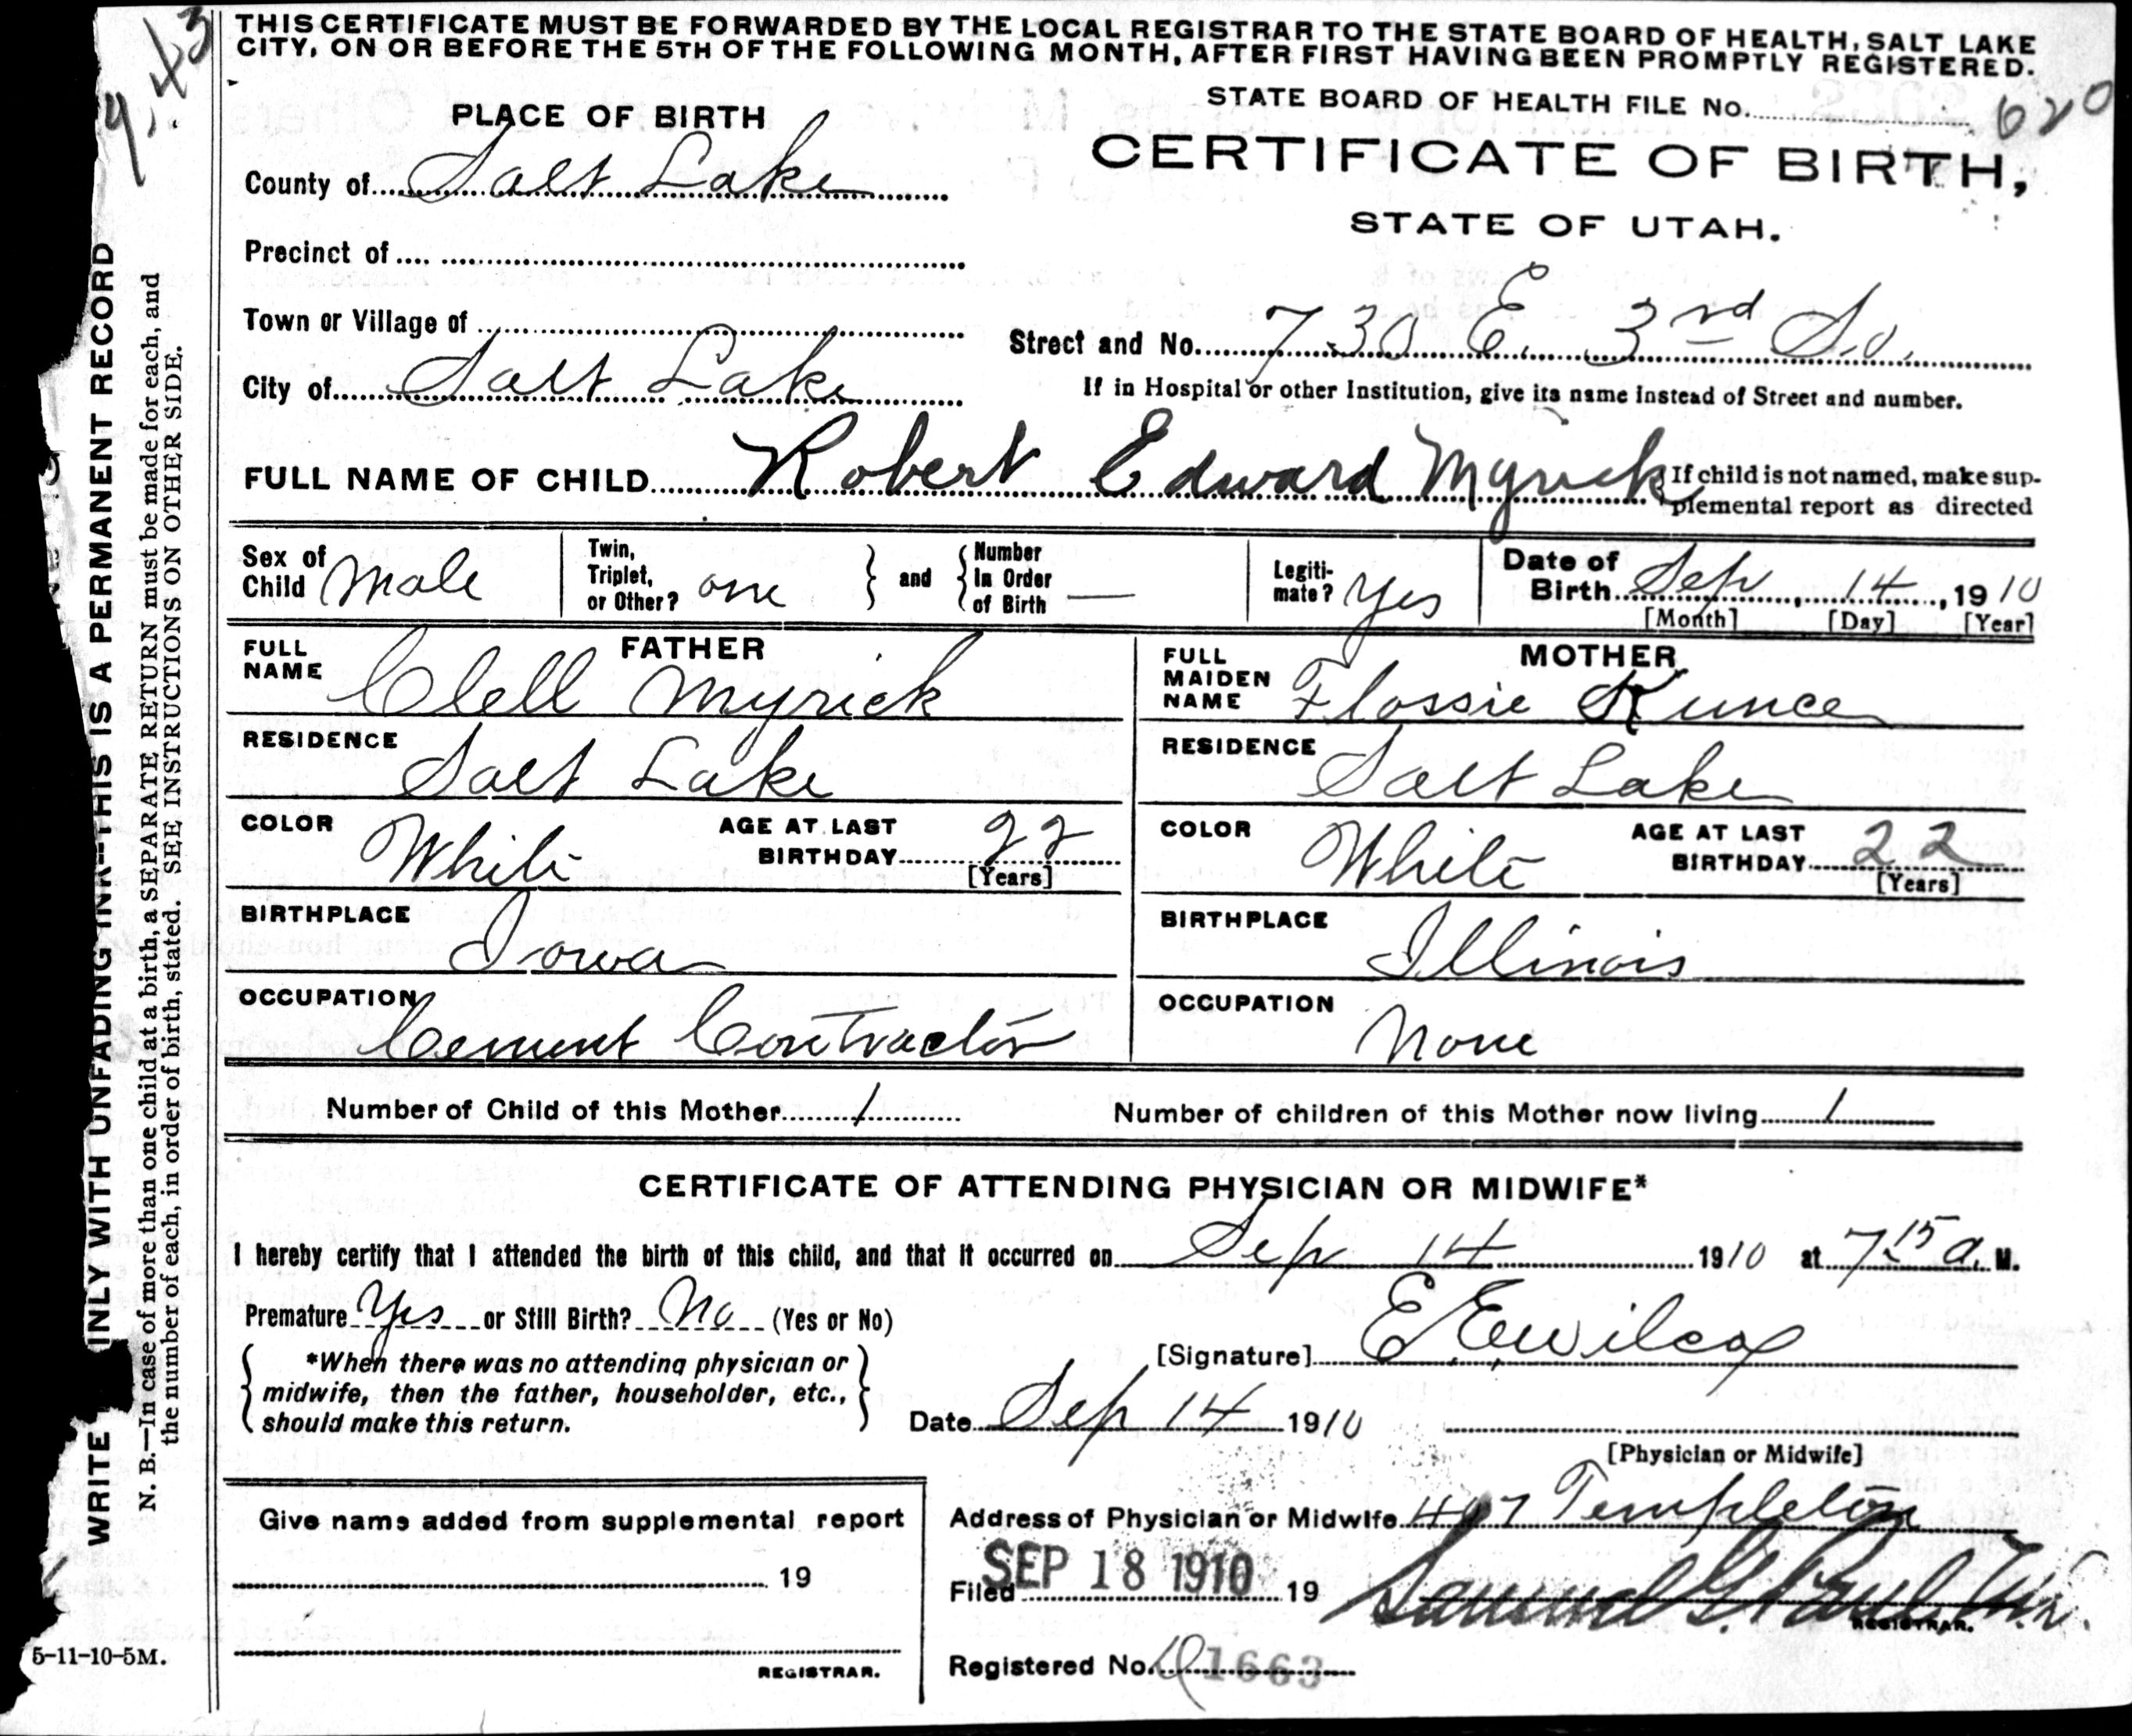 THIS CERTIFICATE MUST BE FORWARDED BY THE LOCAL REGISTRAR TO THE STATE BOARD OF HEALTH, SALT LAKE
CITY, ON OR BEFORE THE 5TH OF THE FOLLOWING MONTH, AFTER FIRST HAVING BEEN PROMPTLY REGISTERED.
STATE BOARD OF HEALTH FILE No. 620
PLACE OF BIRTH
CERTIFICATE OF BIRTH,
STATE OF UTAH.
County of Salt Lake
Precinct of
Town or Village of
Street and No. 730 E. 3rd So.
City of Salt Lake
If in Hospital or other Institution, give its name instead of Street and number.
FULL NAME OF CHILD Robert Edward Myrick
If child is not named, make sup-
plemental report as directed
Sex of Child Male
Twin, Triplet, or Other? one
and
Number In Order of Birth —
Legiti-mate? Yes
Date of Birth Sep 14, 1910
[Month] [Day] [Year]
FATHER
FULL NAME Clell Myrick
RESIDENCE Salt Lake
COLOR White
AGE AT LAST BIRTHDAY 22
[Years]
BIRTHPLACE Iowa
OCCUPATION Cement Contractor
MOTHER
FULL MAIDEN NAME Flossie Kunce
RESIDENCE Salt Lake
COLOR White
AGE AT LAST BIRTHDAY 22
[Years]
BIRTHPLACE Illinois
OCCUPATION None
Number of Child of this Mother 1
Number of children of this Mother now living 1
CERTIFICATE OF ATTENDING PHYSICIAN OR MIDWIFE*
I hereby certify that I attended the birth of this child, and that it occurred on Sep 14 1910 at 7 15 a. M.
Premature Yes or Still Birth? No (Yes or No)
*When there was no attending physician or
midwife, then the father, householder, etc.,
should make this return.
[Signature] E. E. Wilcox
Date Sep 14 1910
[Physician or Midwife]
Give name added from supplemental report
19
REGISTRAR.
Address of Physician or Midwife 407 Templeton
Filed SEP 18 1910 19
Samuel G. Paul
REGISTRAR.
Registered No. 1663
WRITE ONLY WITH UNFADING INK--THIS IS A PERMANENT RECORD
N. B.—In case of more than one child at a birth, a SEPARATE RETURN must be made for each, and
the number of each, in order of birth, stated. SEE INSTRUCTIONS ON OTHER SIDE.
5-11-10-5M.